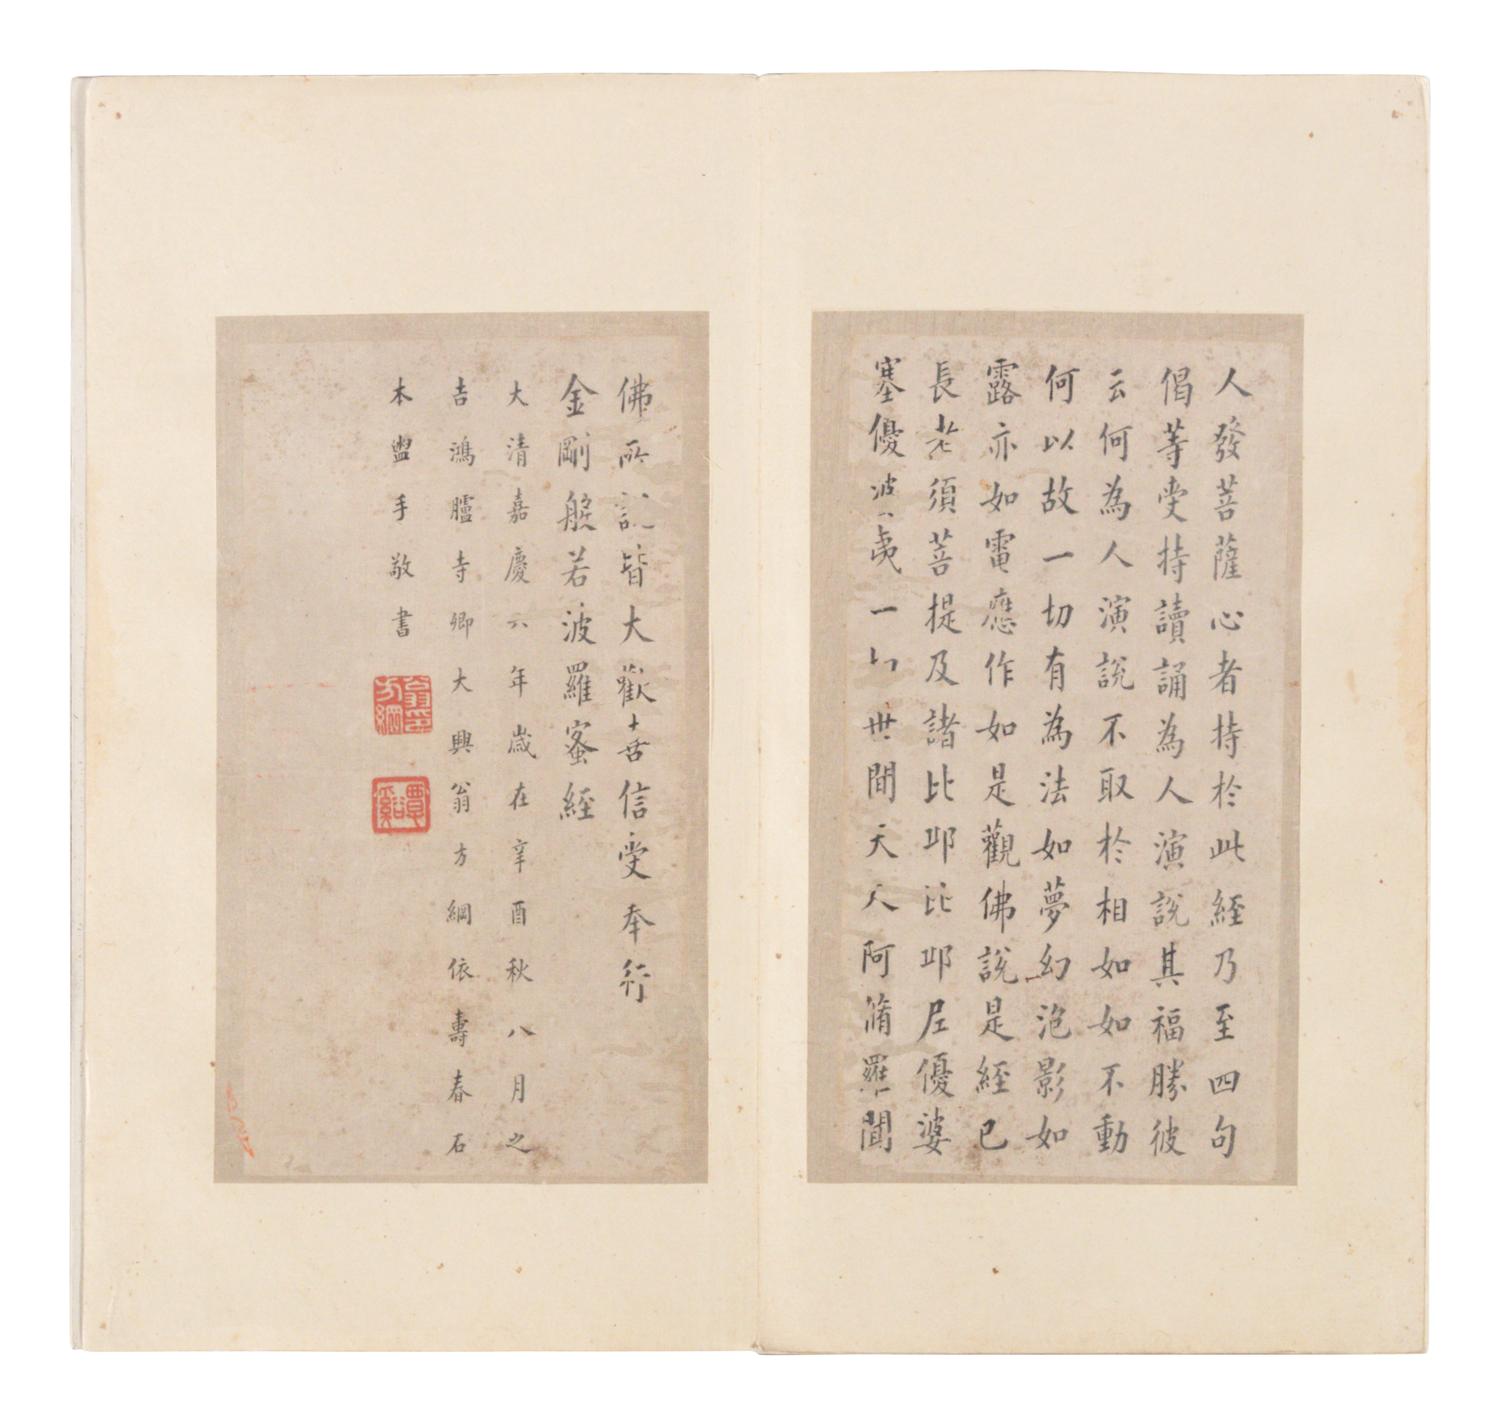 人發菩薩心者持於此經乃至四句
偈等受持讀誦為人演說其福勝彼
云何為人演說不取於相如如不動
何以故一切有為法如夢幻泡影如
露亦如電應作如是觀佛說是經已
長老須菩提及諸比丘比丘尼優婆
塞優婆夷一切世間天人阿脩羅聞
佛所說皆大歡喜信受奉行
金剛般若波羅蜜經
大清嘉慶六年歲在辛酉秋八月之
吉鴻臚寺卿大興翁方綱依壽春石
本盥手敬書
翁方綱印
覃谿